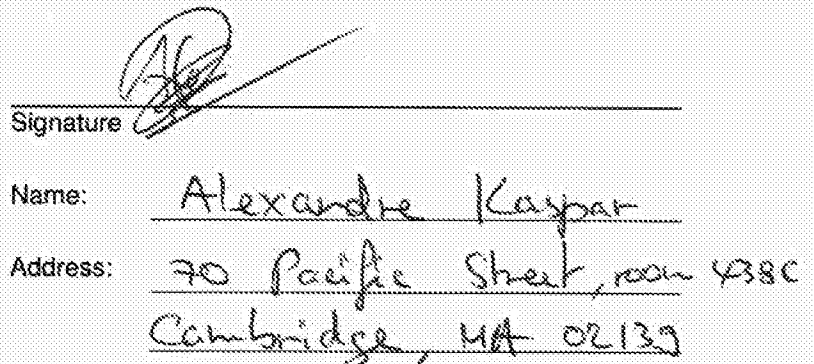 Signature
Name: Alexandre Kaspar
Address: 70 Pacific Street, room 438C
Cambridge, MA 02139